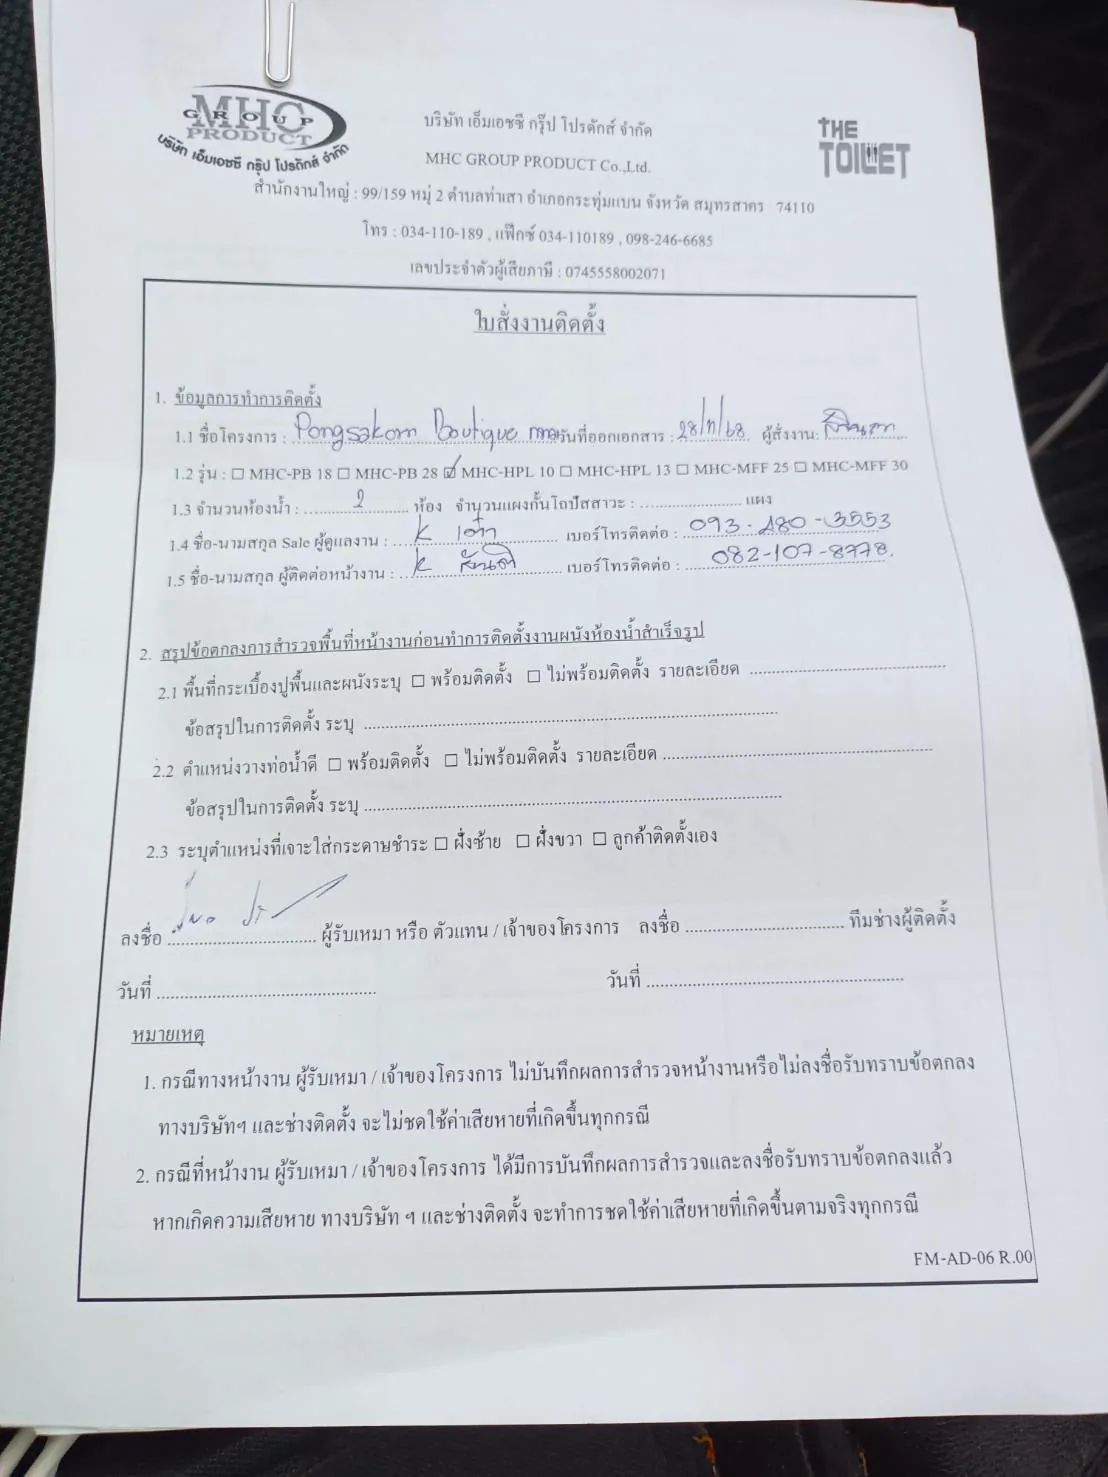 MHC
GROUP
PRODUCT
บริษัท เอ็มเอชซี กรุ๊ป โปรดักส์ จำกัด
บริษัท เอ็มเอชซี กรุ๊ป โปรดักส์ จำกัด
THE
TOILET
MHC GROUP PRODUCT Co.,Ltd.
สำนักงานใหญ่ : 99/159 หมู่ 2 ตำบลท่าเสา อำเภอกระทุ่มแบน จังหวัด สมุทรสาคร 74110
โทร : 034-110-189 , แฟ็กซ์ 034-110189 , 098-246-6685
เลขประจำตัวผู้เสียภาษี : 0745558002071
ใบสั่งงานติดตั้ง
1. ข้อมูลการทำการติดตั้ง
1.1 ชื่อโครงการ : Pongsakorn Boutique วันที่ออกเอกสาร : 28/11/68 ผู้สั่งงาน:
1.2 รุ่น : ☐ MHC-PB 18 ☐ MHC-PB 28 ☑ MHC-HPL 10 ☐ MHC-HPL 13 ☐ MHC-MFF 25 ☐ MHC-MFF 30
1.3 จำนวนห้องน้ำ : 2 ห้อง จำนวนแผงกั้นโถปัสสาวะ : .................... แผง
1.4 ชื่อ-นามสกุล Sale ผู้ดูแลงาน : K เต๋า เบอร์โทรติดต่อ : 093-480-3553
1.5 ชื่อ-นามสกุล ผู้ติดต่อหน้างาน : K สันติ เบอร์โทรติดต่อ : 082-107-8778
2. สรุปข้อตกลงการสำรวจพื้นที่หน้างานก่อนทำการติดตั้งงานผนังห้องน้ำสำเร็จรูป
2.1 พื้นที่กระเบื้องปูพื้นและผนังระบุ ☐ พร้อมติดตั้ง ☐ ไม่พร้อมติดตั้ง รายละเอียด ....................
ข้อสรุปในการติดตั้ง ระบุ ....................
2.2 ตำแหน่งวางท่อน้ำดี ☐ พร้อมติดตั้ง ☐ ไม่พร้อมติดตั้ง รายละเอียด ....................
ข้อสรุปในการติดตั้ง ระบุ ....................
2.3 ระบุตำแหน่งที่เจาะใส่กระดาษชำระ ☐ ฝั่งซ้าย ☐ ฝั่งขวา ☐ ลูกค้าติดตั้งเอง
ลงชื่อ .................... ผู้รับเหมา หรือ ตัวแทน / เจ้าของโครงการ ลงชื่อ .................... ทีมช่างผู้ติดตั้ง
วันที่ .................... วันที่ ....................
หมายเหตุ
1. กรณีทางหน้างาน ผู้รับเหมา / เจ้าของโครงการ ไม่บันทึกผลการสำรวจหน้างานหรือไม่ลงชื่อรับทราบข้อตกลง
ทางบริษัทฯ และช่างติดตั้ง จะไม่ชดใช้ค่าเสียหายที่เกิดขึ้นทุกกรณี
2. กรณีที่หน้างาน ผู้รับเหมา / เจ้าของโครงการ ได้มีการบันทึกผลการสำรวจและลงชื่อรับทราบข้อตกลงแล้ว
หากเกิดความเสียหาย ทางบริษัท ฯ และช่างติดตั้ง จะทำการชดใช้ค่าเสียหายที่เกิดขึ้นตามจริงทุกกรณี
FM-AD-06 R.00